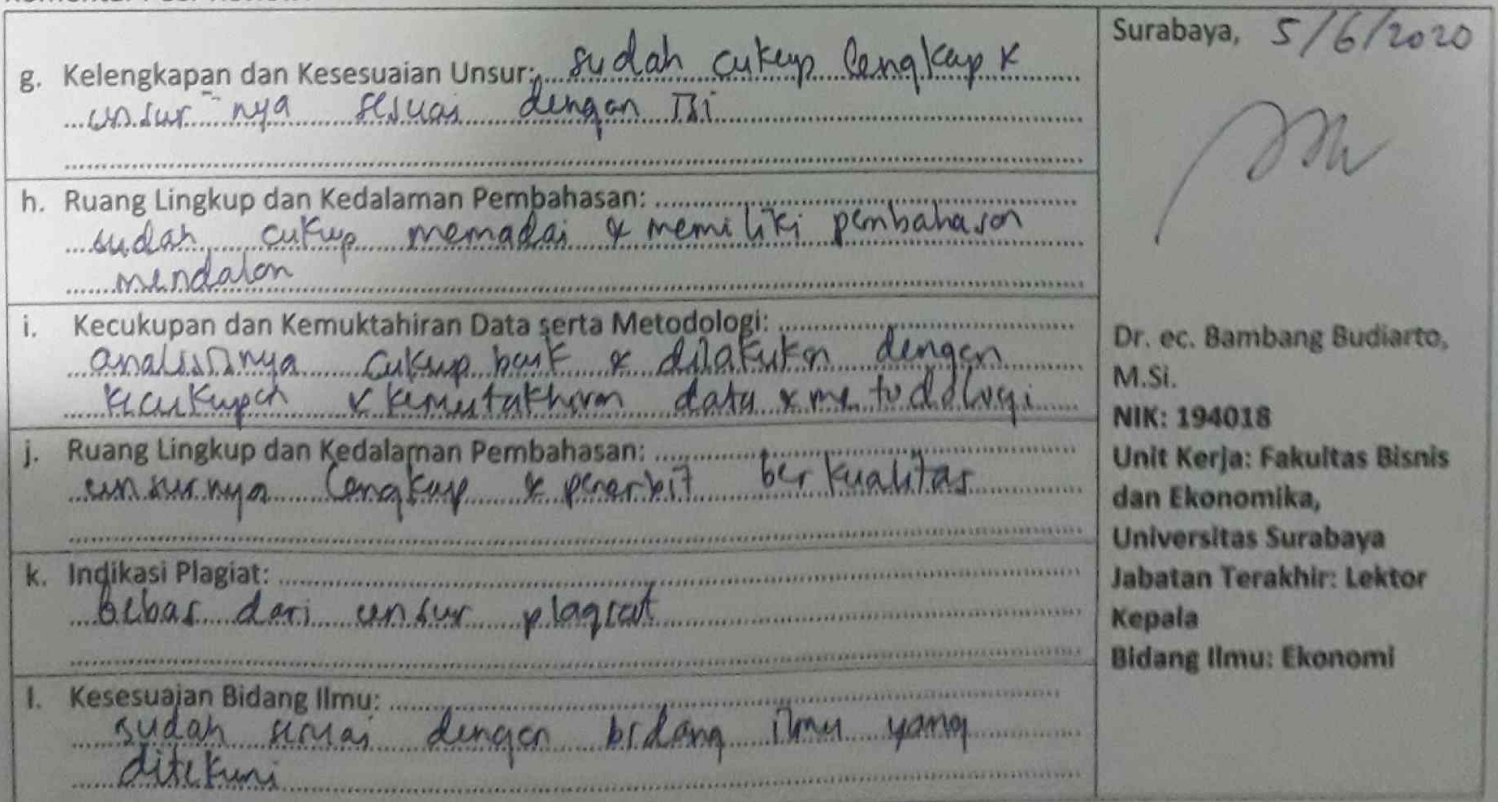 g. Kelengkapan dan Kesesuaian Unsur: sudah cukup lengkap &
unsur-nya sesuai dengan Isi
h. Ruang Lingkup dan Kedalaman Pembahasan:
sudah cukup memadai & memiliki pembahasan
mendalam
i. Kecukupan dan Kemuktahiran Data serta Metodologi:
analisisnya cukup baik & dilakukan dengan
kecukupan & kemutakhiran data & metodologi
j. Ruang Lingkup dan Kedalaman Pembahasan:
unsurnya lengkap & penerbit berkualitas
k. Indikasi Plagiat:
bebas dari unsur plagiat
l. Kesesuaian Bidang Ilmu:
sudah sesuai dengan bidang ilmu yang
ditekuni
Surabaya, 5/6/2020
Dr. ec. Bambang Budiarto,
M.Si.
NIK: 194018
Unit Kerja: Fakultas Bisnis
dan Ekonomika,
Universitas Surabaya
Jabatan Terakhir: Lektor
Kepala
Bidang Ilmu: Ekonomi